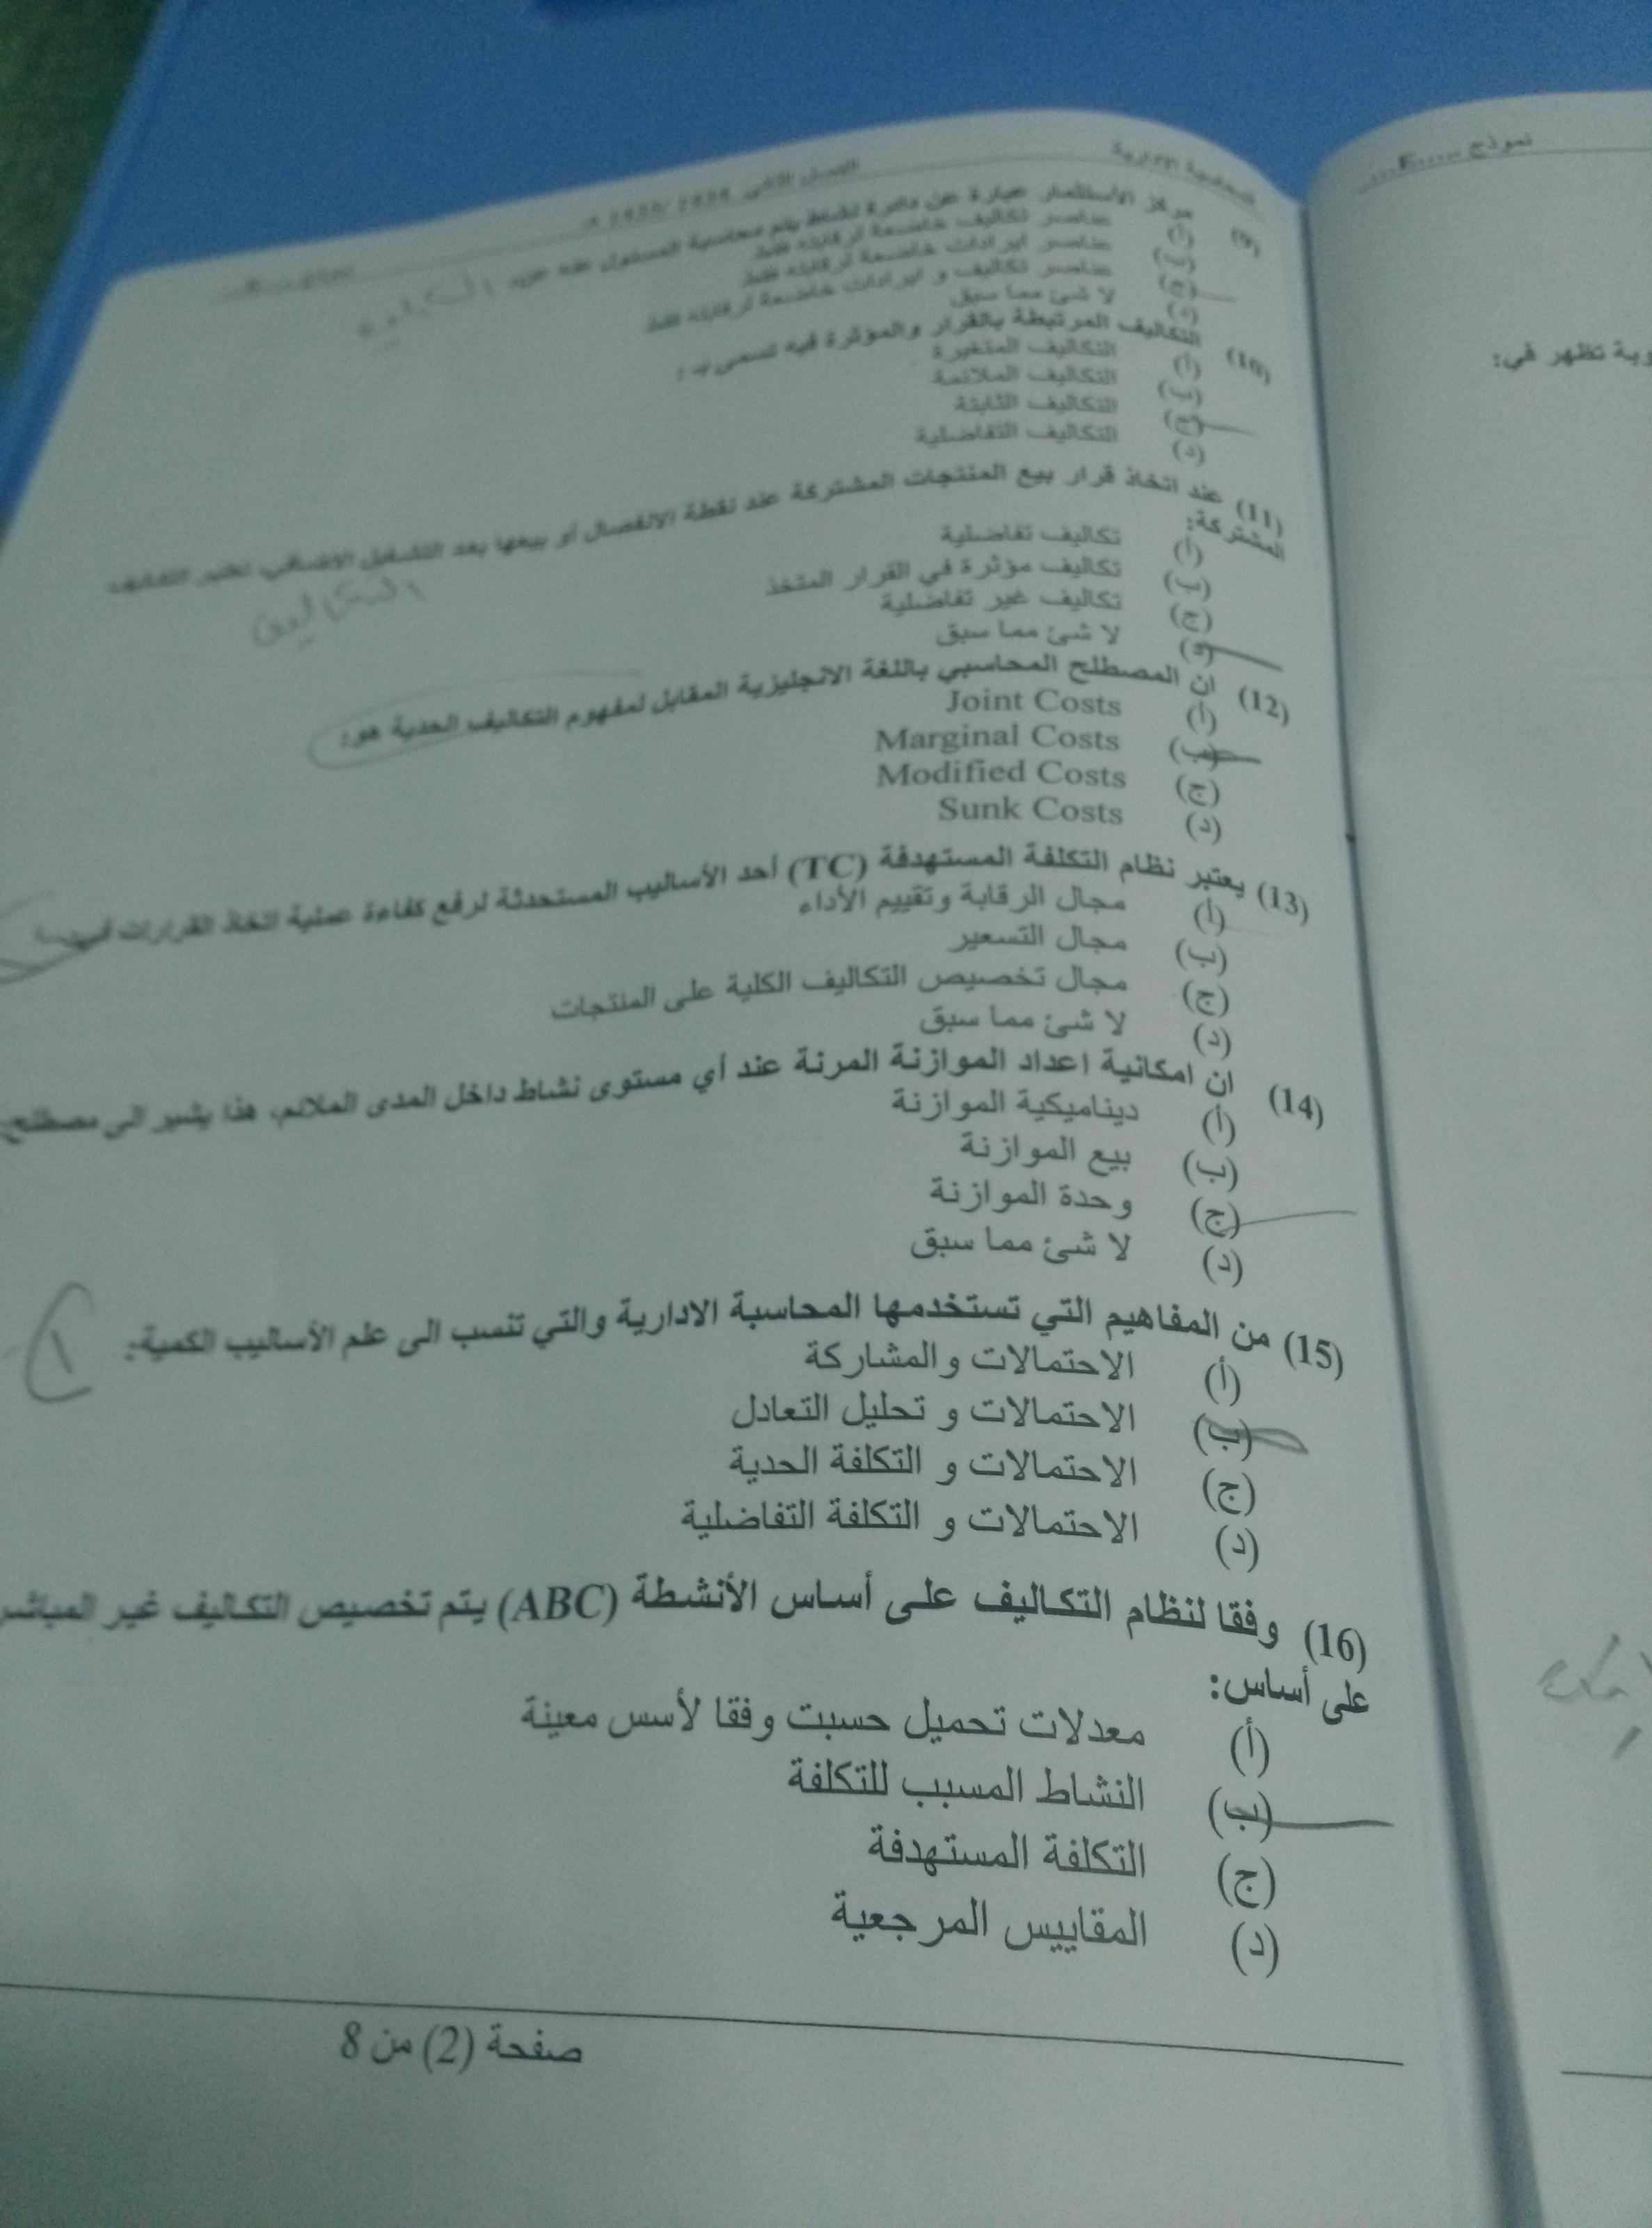 المحاسبة الإدارية
الفصل الثاني
نموذج
(9) مركز الاستثمار عبارة عن دائرة نشاط يتم محاسبة المسئول عنه
(أ) عناصر تكاليف خاضعة لرقابته فقط
(ب) عناصر ايرادات خاضعة لرقابته فقط
(ج) عناصر تكاليف و ايرادات خاضعة لرقابته فقط
(د) لا شئ مما سبق
(10) التكاليف المرتبطة بالقرار والمؤثرة فيه تسمى بـ :
(أ) التكاليف المتغيرة
(ب) التكاليف الملائمة
(ج) التكاليف الثابتة
(د) التكاليف التفاضلية
(11) عند اتخاذ قرار بيع المنتجات المشتركة عند نقطة الانفصال أو بيعها بعد التشغيل الإضافي، تعتبر التكاليف
المشتركة:
(أ) تكاليف تفاضلية
(ب) تكاليف مؤثرة في القرار المتخذ
(ج) تكاليف غير تفاضلية
(د) لا شئ مما سبق
التكاليف
(12) ان المصطلح المحاسبي باللغة الانجليزية المقابل لمفهوم التكاليف الحدية هو:
(أ) Joint Costs
(ب) Marginal Costs
(ج) Modified Costs
(د) Sunk Costs
(13) يعتبر نظام التكلفة المستهدفة (TC) أحد الأساليب المستحدثة لرفع كفاءة عملية اتخاذ القرارات
(أ) مجال الرقابة وتقييم الأداء
(ب) مجال التسعير
(ج) مجال تخصيص التكاليف الكلية على المنتجات
(د) لا شئ مما سبق
(14) ان امكانية اعداد الموازنة المرنة عند أي مستوى نشاط داخل المدى الملائم، هذا يشير الى مصطلح
(أ) ديناميكية الموازنة
(ب) بيع الموازنة
(ج) وحدة الموازنة
(د) لا شئ مما سبق
(15) من المفاهيم التي تستخدمها المحاسبة الادارية والتي تنسب الى علم الأساليب الكمية:
(أ) الاحتمالات والمشاركة
(ب) الاحتمالات و تحليل التعادل
(ج) الاحتمالات و التكلفة الحدية
(د) الاحتمالات و التكلفة التفاضلية
(16) وفقا لنظام التكاليف على أساس الأنشطة (ABC) يتم تخصيص التكاليف غير
على أساس:
(أ) معدلات تحميل حسبت وفقا لأسس معينة
(ب) النشاط المسبب للتكلفة
(ج) التكلفة المستهدفة
(د) المقاييس المرجعية
صفحة (2) من 8
تظهر في: